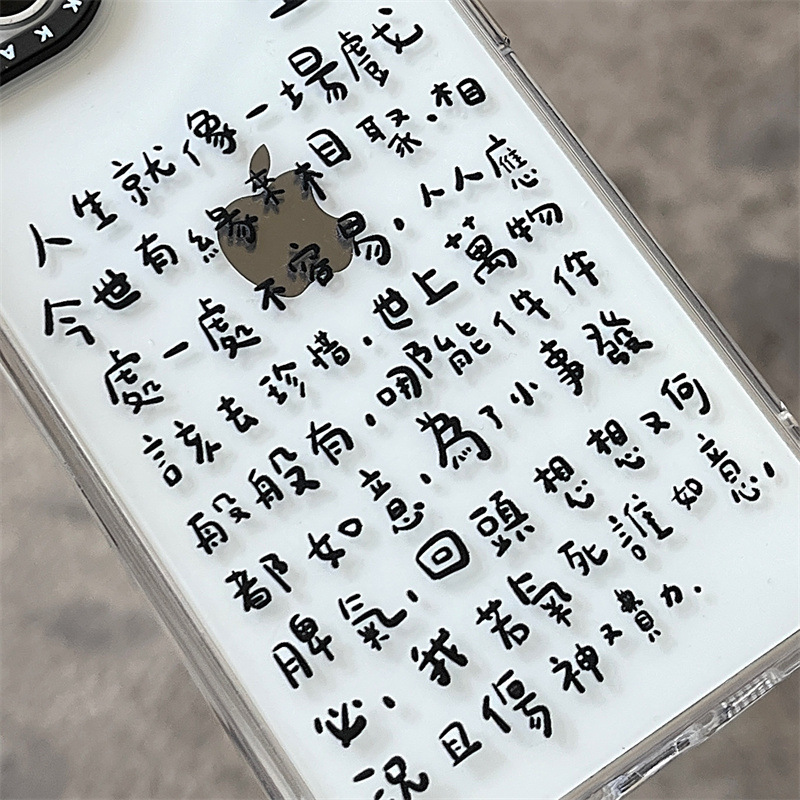 人生就像一場戲
今世有緣來相聚.相
處一處不容易,人人應
該去珍惜.世上萬物
般般有,哪能件件
都如意,為了小事發
脾氣,回頭想想又何
必,我若氣死誰如意,
況且傷神又費力.